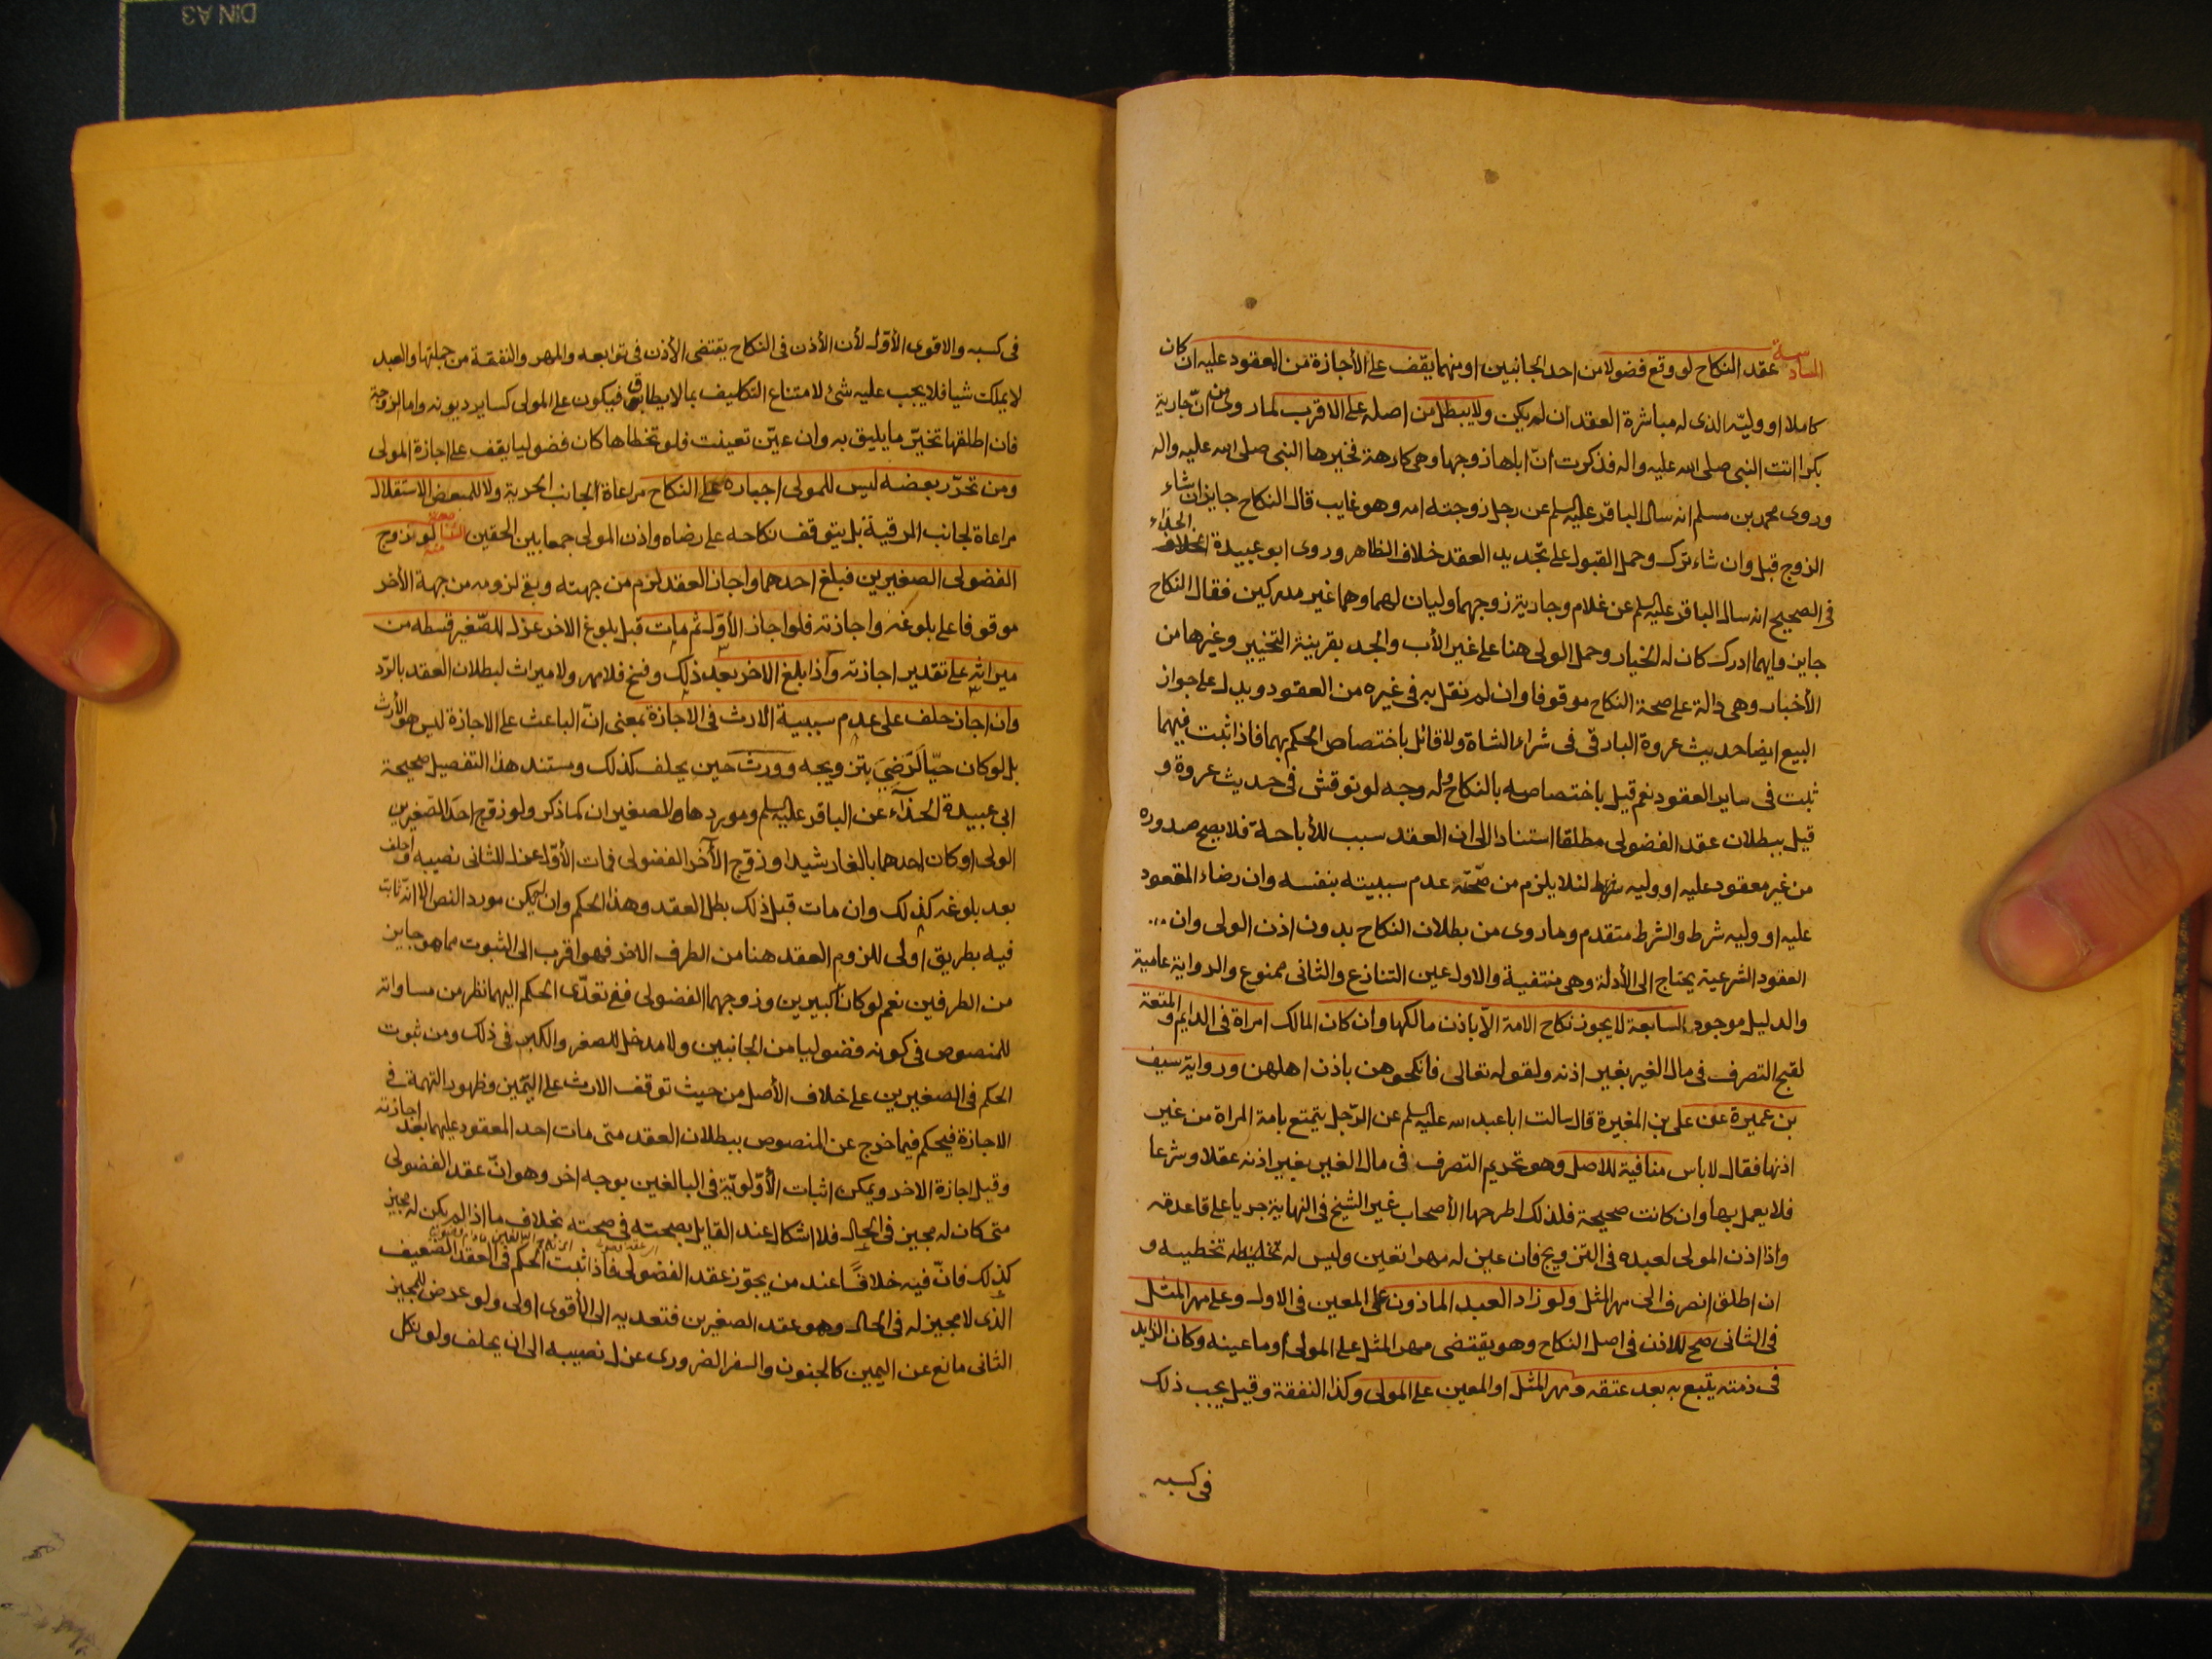 السادسة عقد النكاح لو وقع فضولا من احد الجانبين او منهما يقف على الأجازة من المعقود عليه ان كان
كاملا او وليّه الذى له مباشرة العقد ان لم يكن ولا يبطل من اصله على الاقرب لما روى من انّ جارية
بكرا اتت النبى صلى الله عليه واله فذكرت انّ اباها زوجها وهى كارهة فخيرها النبى صلى الله عليه واله
وروى محمد بن مسلم انه سال الباقر عليه السلم عن رجل زوجته امه وهو غايب قال النكاح جايز ان شاء
الزوج قبل وان شاء ترك وحمل القبول على تجديد العقد خلاف الظاهر وروى ابو عبيدة الحذاء
فى الصحيح انه سال الباقر عليه السلم عن غلام وجارية زوجهما وليان لهما وهما غير مدركين فقال النكاح
جايز وايهما ادرك كان له الخيار وحمل الولى هنا على غير الأب والجد بقرينة التخيير وغيرها من
الأخبار وهى دالة على صحة النكاح موقوفا وان لم نقل به فى غيره من العقود ويدل على جواز
البيع ايضا حديث عروة البارقى فى شراء الشاة ولا قائل باختصاص الحكم بهما فاذا ثبت فيهما
ثبت فى ساير العقود نعم قيل باختصاصه بالنكاح وله وجه لو نوقش فى حديث عروة و
قيل ببطلان عقد الفضولى مطلقا استنادا الى ان العقد سبب للأباحة فلا يصح صدوره
من غير معقود عليه او وليه لئلا يلزم من صحّته عدم سببيته بنفسه وان رضاء المعقود
عليه او وليه شرط والشرط متقدم وما روى من بطلان النكاح بدون اذن الولى وان
العقود الشرعية يحتاج الى الأدلة وهى منتفية والاول عين التنازع والثانى ممنوع والرواية عامية
والدليل موجود السابعة لا يجوز نكاح الامة الّا باذن مالكها وان كان المالك امراة فى الدايم والمتعة
لقبح التصرف فى مال الغير بغير اذنه ولقوله تعالى فانكحوهن باذن اهلهن ورواية سيف
بن عميرة عن على بن المغيرة قال سالت ابا عبد الله عليه السلم عن الرّجل يتمتع بامة المراة من غير
اذنها فقال لا باس منافية للاصل وهو تحريم التصرف فى مال الغير بغير اذنه عقلا وشرعا
فلا يعمل بها وان كانت صحيحة فلذلك اطرحها الأصحاب غير الشيخ فى النهاية جريا على قاعدته
واذا اذن المولى لعبده فى التزويج فان عين له مهرا تعين وليس له تخطيه و
ان اطلق انصرف الى مهر المثل ولو زاد العبد الماذون على المعين فى الاول وعلى مهر المثل
فى الثانى صح للاذن فى اصل النكاح وهو يقتضى مهر المثل على المولى او ما عينه وكان الزايد
فى ذمته يتبع به بعد عتقه ومهر المثل او المعين على المولى وكذا النفقة وقيل يجب ذلك
فى كسبه
فى كسبه والاقوى الأوّل لأن الأذن فى النكاح يقتضى الأذن فى توابعه والمهر والنفقة من جملتها والعبد
لا يملك شيا فلا يجب عليه شئ لامتناع التكليف بما لا يطاق فيكون على المولى كساير ديونه واما الزوجة
فان اطلقها تخيّر ما يليق به وان عيّن تعينت فلو تخطاها كان فضوليا يقف على اجازة المولى
ومن تحرّر بعضه ليس للمولى اجباره على النكاح مراعاة لجانب الحرية ولا للمبعض الاستقلال
مراعاة لجانب الرقية بل يتوقف نكاحه على رضاه واذن المولى جمعا بين الحقين الثامنة لو زوج
الفضولى الصغيرين فبلغ احدهما واجاز العقد لزم من جهته وبقى لزومه من جهة الأخر
موقوفا على بلوغه واجازته فلو اجاز الأوّل ثم مات قبل بلوغ الاخر عزل للصّغير قسطه من
ميراثه على تقدير اجازته واذا بلغ الاخر بعد ذلك وفسخ فلا مهر ولا ميراث لبطلان العقد بالرّد
وان اجاز حلف على عدم سببية الارث فى الاجازة بمعنى انّ الباعث على الاجازة ليس هو الأرث
بل لو كان حيّا لرَضِيَ بتزويجه وورث حين يحلف كذلك ومستند هذا التفصيل صحيحة
ابى عبيدة الحذآء عن الباقر عليه السلم وموردها الصغيران كما ذكر ولو زوّج احد الصّغيرين
الولى او كان احدهما بالغا رشيدا وزوّج الآخر الفضولى فمات الأوّل عزل للثانى نصيبه واحلف
بعد بلوغه كذلك وان مات قبل ذلك بطل العقد وهذا الحكم وان لم يكن مورد النص الا انّه ثابت
فيه بطريق اولى للزوم العقد هنا من الطرف الاخر فهو اقرب الى الثبوت مما هو جايز
من الطرفين نعم لو كانا كبيرين وزوجهما الفضولى ففى تعدّى الحكم اليهما نظر من مساواته
للمنصوص فى كونه فضوليا من الجانبين ولا مدخل للصغر والكبر فى ذلك ومن ثبوت
الحكم فى الصغيرين على خلاف الأصل من حيث توقف الارث على اليّمين وظهور التهمة فى
الاجازة فيحكم فيما خرج عن المنصوص ببطلان العقد متى مات احد المعقود عليهما بعد اجازته
وقبل اجازة الاخر ويمكن اثبات الأوّلويّة فى البالغين بوجه اخر وهو انّ عقد الفضولى
متى كان له مجيز فى الحال فلا اشكال عند القايل بصحته فى صحته بخلاف ما اذا لم يكن له مجيز
كذلك فانّ فيه خلافًا عند من يجوّز عقد الفضولى فاذا ثبت الحكم فى العقد الضعيف
الذى لا مجيز له فى الحال وهو عقد الصغيرين فتعديه الى الأقوى اولى ولو عرض للمجيز
الثانى مانع عن اليمين كالجنون والسفر الضرورى عزل نصيبه الى ان يحلف ولو نكل